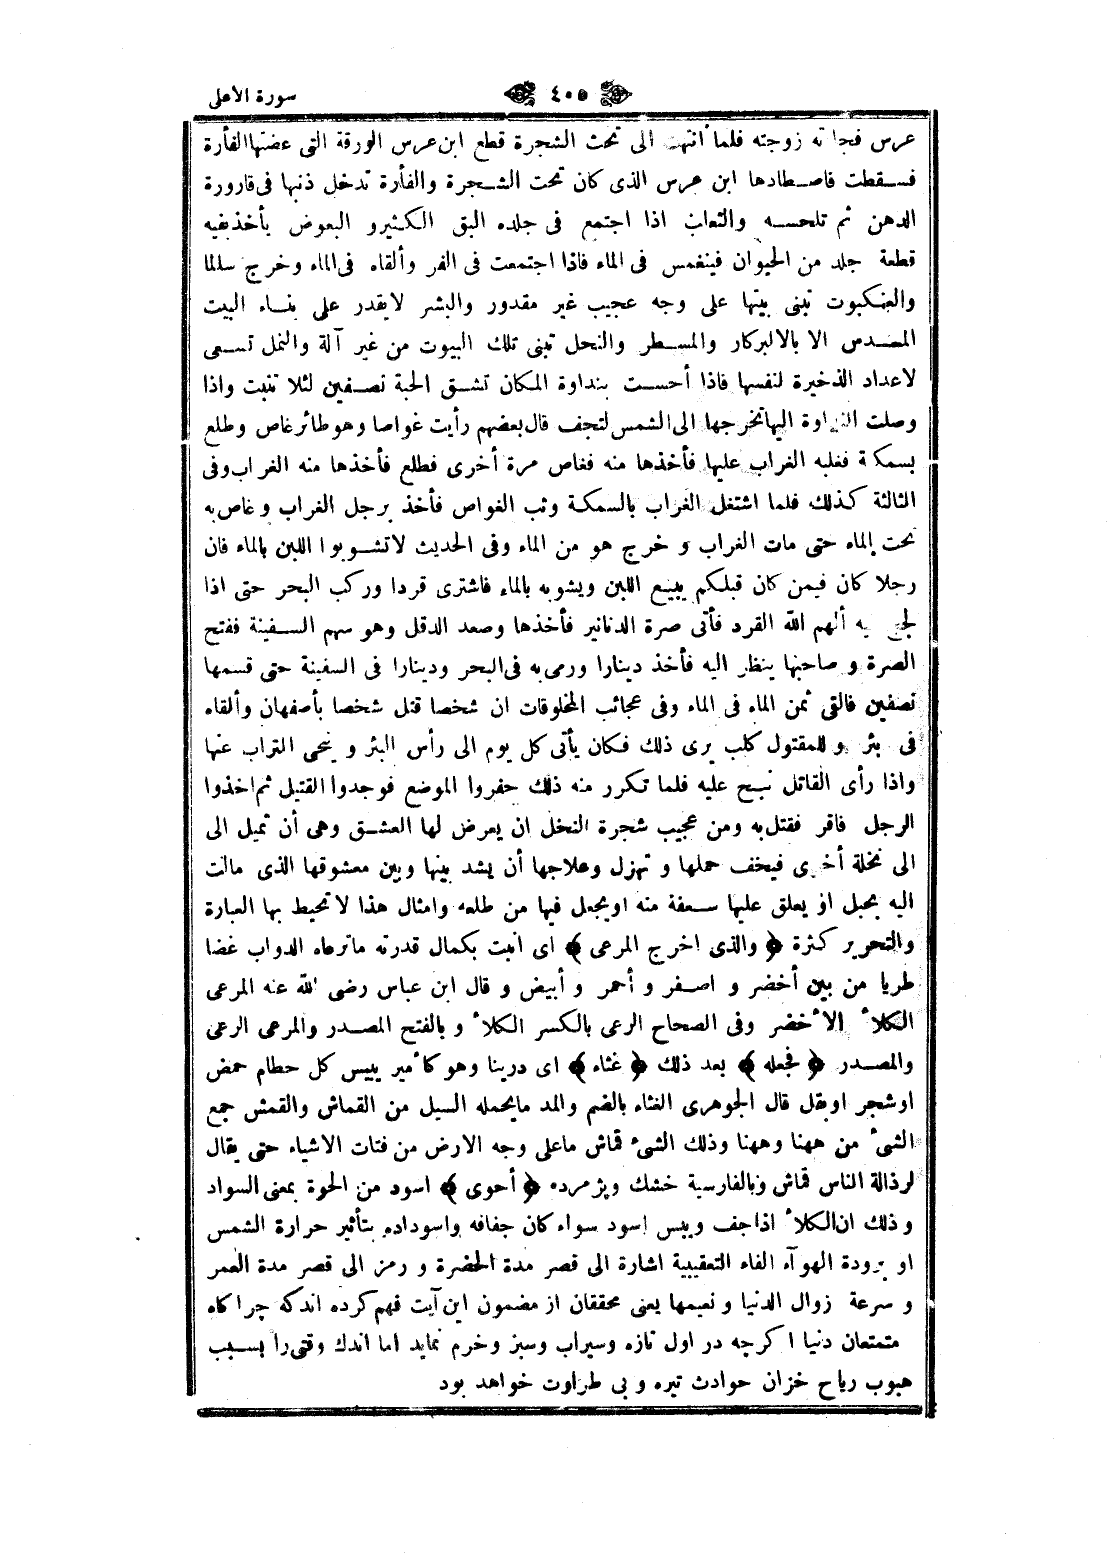 ٤٠٥
سورة الأعلى
عرس فجاءته زوجته فلما انتهت الى تحت الشجرة قطع ابن عرس الورقة التى عضتها الفأرة
فسقطت فاصطادها ابن عرس الذى كان تحت الشجرة والفأرة تدخل ذنبها فى قارورة
الدهن ثم تلحسه والثعاب اذا اجتمع فى جلده البق الكثير و البعوض يأخذ بفيه
قطعة جلد من الحيوان فينغمس فى الماء فاذا اجتمعت فى الفر وألقاه فى الماء وخرج سالما
والعنكبوت تبنى بيتها على وجه عجيب غير مقدور والبشر لا يقدر على بناء البيت
المسدس الا بالالبركار والمسطر والنحل تبنى تلك البيوت من غير آلة والنمل تسعى
لاعداد الذخيرة لنفسها فاذا أحست بنداوة المكان تشق الحبة نصفين لئلا تنبت واذا
وصلت النداوة اليها تخرجها الى الشمس لتجف قال بعضهم رأيت غواصا وهو طائر غاص وطلع
بسمكة فغلبه الغراب عليها فأخذها منه فغاص مرة أخرى فطلع فأخذها منه الغراب وفى
الثالثة كذلك فلما اشتغل الغراب بالسمكة وثب الغواص فأخذ برجل الغراب و غاص به
تحت الماء حتى مات الغراب و خرج هو من الماء وفى الحديث لا تشوبوا اللبن بالماء فان
رجلا كان فيمن كان قبلكم يبيع اللبن ويشوبه بالماء فاشترى قردا وركب البحر حتى اذا
لجج فيه ألهم الله القرد فأتى صرة الدنانير فأخذها وصعد الدقل وهو سهم السفينة ففتح
الصرة و صاحبها ينظر اليه فأخذ دينارا ورمى به فى البحر ودينارا فى السفينة حتى قسمها
نصفين فالتى ثمن الماء فى الماء وفى عجائب المخلوقات ان شخصا قتل شخصا بأصفهان وألقاه
فى بئر و للمقتول كلب يرى ذلك فكان يأتى كل يوم الى رأس البئر و ينحى التراب عنها
واذا رأى القاتل نبح عليه فلما تكرر منه ذلك حفروا الموضع فوجدوا القتيل ثم اخذوا
الرجل فاقر فقتل به ومن عجيب شجرة النخل ان يعرض لها العشق وهى أن تميل الى
الى نخلة أخرى فيخف حملها و تهزل وعلاجها أن يشد بينها وبين معشوقها الذى مالت
اليه بحبل او يعلق عليها سعفة منه او يجعل فيها من طلعه وامثال هذا لا تحيط بها العبارة
والتحرير كثرة ﴿ والذى اخرج المرعى ﴾ اى انبت بكمال قدرته ما ترعاه الدواب غضا
طريا من بين أخضر و اصفر و أحمر و أبيض و قال ابن عباس رضى الله عنه المرعى
الكلأ الأخضر وفى الصحاح الرعى بالكسر الكلأ و بالفتح المصدر والمرعى الرعى
والمصدر ﴿ فجعله ﴾ بعد ذلك ﴿ غثاء ﴾ اى درينا وهو كأمير يبيس كل حطام حمض
او شجر او بقل قال الجوهرى الغثاء بالضم والمد ما يحمله السيل من القماش والقمش جمع
الشىٔ من ههنا وههنا وذلك الشىٔ قماش ما على وجه الارض من فتات الاشياء حتى يقال
لرذالة الناس قماش وبالفارسية خشك وپژمرده ﴿ أحوى ﴾ اسود من الحوة بمعنى السواد
و ذلك ان الكلأ اذا جف ويبس اسود سواء كان جفافه واسوداده بتأثير حرارة الشمس
او برودة الهوآء الفاء التعقيبية اشارة الى قصر مدة الخضرة و رمز الى قصر مدة العمر
و سرعة زوال الدنيا و نعيمها يعنى محققان از مضمون اين آيت فهم كرده اندكه چراكاه
متمتعان دنيا اكرچه در اول تازه وسيراب وسبز وخرم نمايد اما اندك وقتى را بسبب
هبوب رياح خزان حوادث تيره و بى طراوت خواهد بود